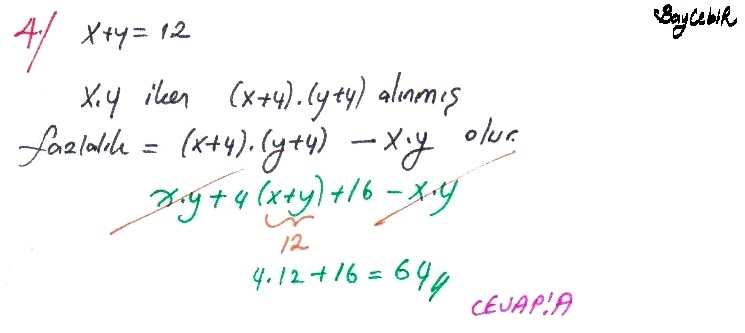 BayCebiR
4-/ x+y=12
x.y iken (x+4).(y+4) alınmış
fazlalık = (x+4).(y+4) - x.y olur.
x.y + 4(x+y) + 16 - x.y
12
4.12 + 16 = 64
CEVAP:A